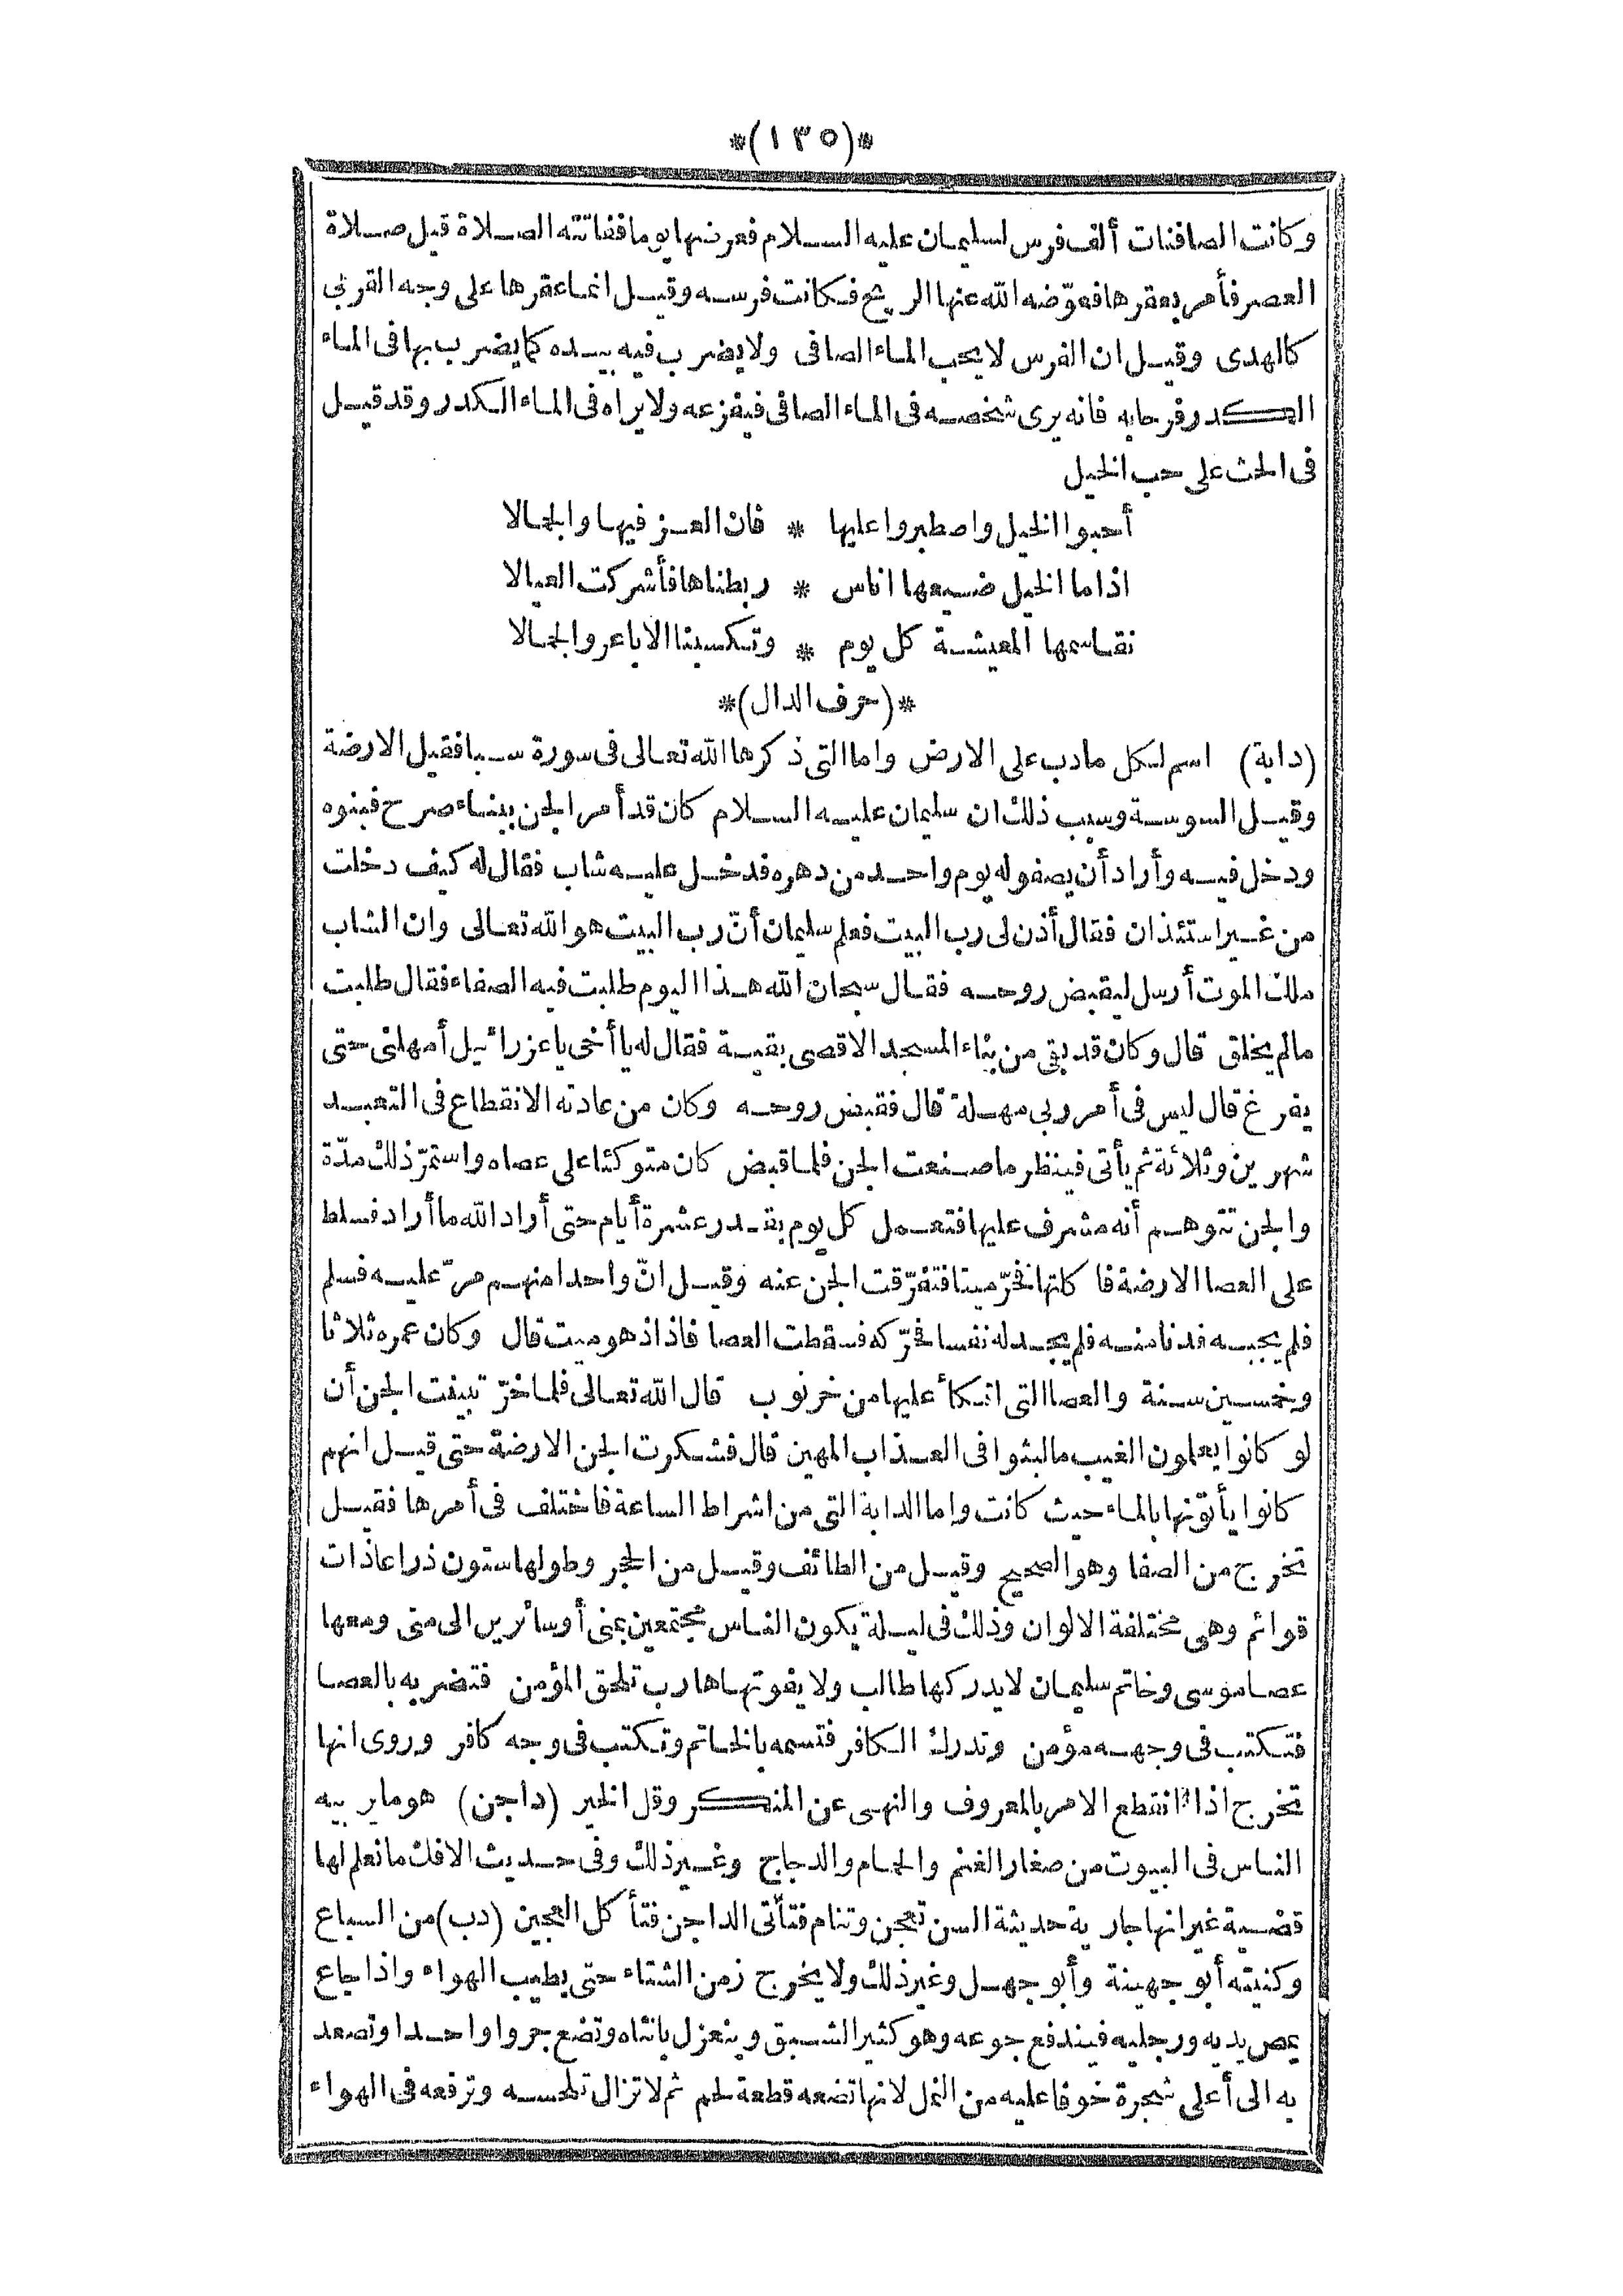 *(١٣٥)*
وكانت الصافنات ألف فرس لسليمان عليه السلام فعرضها يوما ففاتته الصلاة قيل صلاة
العصر فأمر بعقرها فعوّضه الله عنها الريح فكانت فرسه وقيل انما عقرها على وجه القربى
كالهدى وقيل ان الفرس لا يحب الماء الصافى ولا يضرب فيه بيده كما يضرب بها فى الماء
الكدر فرحا به فانه يرى شخصه فى الماء الصافى فيفزعه ولا يراه فى الماء الكدر وقد قيل
فى الحث على حب الخيل
أحبوا الخيل واصطبروا عليها * فان العز فيها والجمالا
اذا ما الخيل ضيعها اناس * ربطناها فأشركت العيالا
نقاسمها المعيشة كل يوم * وتكسبنا الاباعر والجمالا
*(حرف الدال)*
(دابة) اسم لكل مادب على الارض واما التى ذكرها الله تعالى فى سورة سبا فقيل الارضة
وقيل السوسة وسبب ذلك ان سليمان عليه السلام كان قد أمر الجن ببناء صرح فبنوه
ودخل فيه وأراد أن يصفو له يوم واحد من دهره فدخل عليه شاب فقال له كيف دخلت
من غير استئذان فقال أذن لى رب البيت فعلم سليمان أنّ رب البيت هو الله تعالى وان الشاب
ملك الموت أرسل ليقبض روحه فقال سبحان الله هذا اليوم طلبت فيه الصفاء فقال طلبت
مالم يخلق قال وكان قد بقى من بناء المسجد الاقصى بقية فقال له يا أخى يا عزرائيل أمهلنى حتى
يفرغ قال ليس فى أمر ربى مهلة قال فقبض روحه وكان من عادته الانقطاع فى التعبد
شهرين وثلاثة ثم يأتى فينظر ما صنعت الجن فلما قبض كان متوكئا على عصاه واستمرّ ذلك مدّة
والجن تتوهم أنه مشرف عليها فتعمل كل يوم بقدر عشرة أيام حتى أراد الله ما أراد فسلط
على العصا الارضة فاكلتها فخرّ ميتا فتفرّقت الجن عنه وقيل انّ واحدا منهم مرّ عليه فسلم
فلم يجبه فدنا منه فلم يجد له نفسا فحرّكه فسقطت العصا فاذا هو ميت قال وكان عمره ثلاثا
وخمسين سنة والعصا التى اتكأ عليها من خرنوب قال الله تعالى فلما خرّ تبينت الجن أن
لو كانوا يعلمون الغيب ما لبثوا فى العذاب المهين قال فشكرت الجن الارضة حتى قيل انهم
كانوا يأتونها بالماء حيث كانت واما الدابة التى من اشراط الساعة فاختلف فى أمرها فقيل
تخرج من الصفا وهو الصحيح وقيل من الطائف وقيل من الحجر وطولها ستون ذراعا ذات
قوائم وهى مختلفة الالوان وذلك فى ليلة يكون الناس مجتمعين بمنى أو سائرين الى منى ومعها
عصا موسى وخاتم سليمان لا يدركها طالب ولا يفوتها هارب تلحق المؤمن فتضربه بالعصا
فتكتب فى وجهه مؤمن وتدرك الكافر فتسمه بالخاتم وتكتب فى وجه كافر وروى انها
تخرج اذا انقطع الامر بالمعروف والنهى عن المنكر وقل الخير (داجن) هو ما يربيه
الناس فى البيوت من صغار الغنم والحمام والدجاج وغير ذلك وفى حديث الافك ما نعلم لها
قضية غير انها جارية حديثة السن تعجن وتنام فتأتى الداجن فتأكل العجين (دب) من السباع
وكنيته أبو جهينة وأبو جهل وغير ذلك ولا يخرج زمن الشتاء حتى يطيب الهواء واذا جاع
يمص يديه ورجليه فيندفع جوعه وهو كثير الشبق وينعزل بانثاه وتضع جروا واحدا وتصعد
به الى أعلى شجرة خوفا عليه من النمل لانها تضعه قطعة لحم ثم لا تزال تلحسه وترفعه فى الهواء